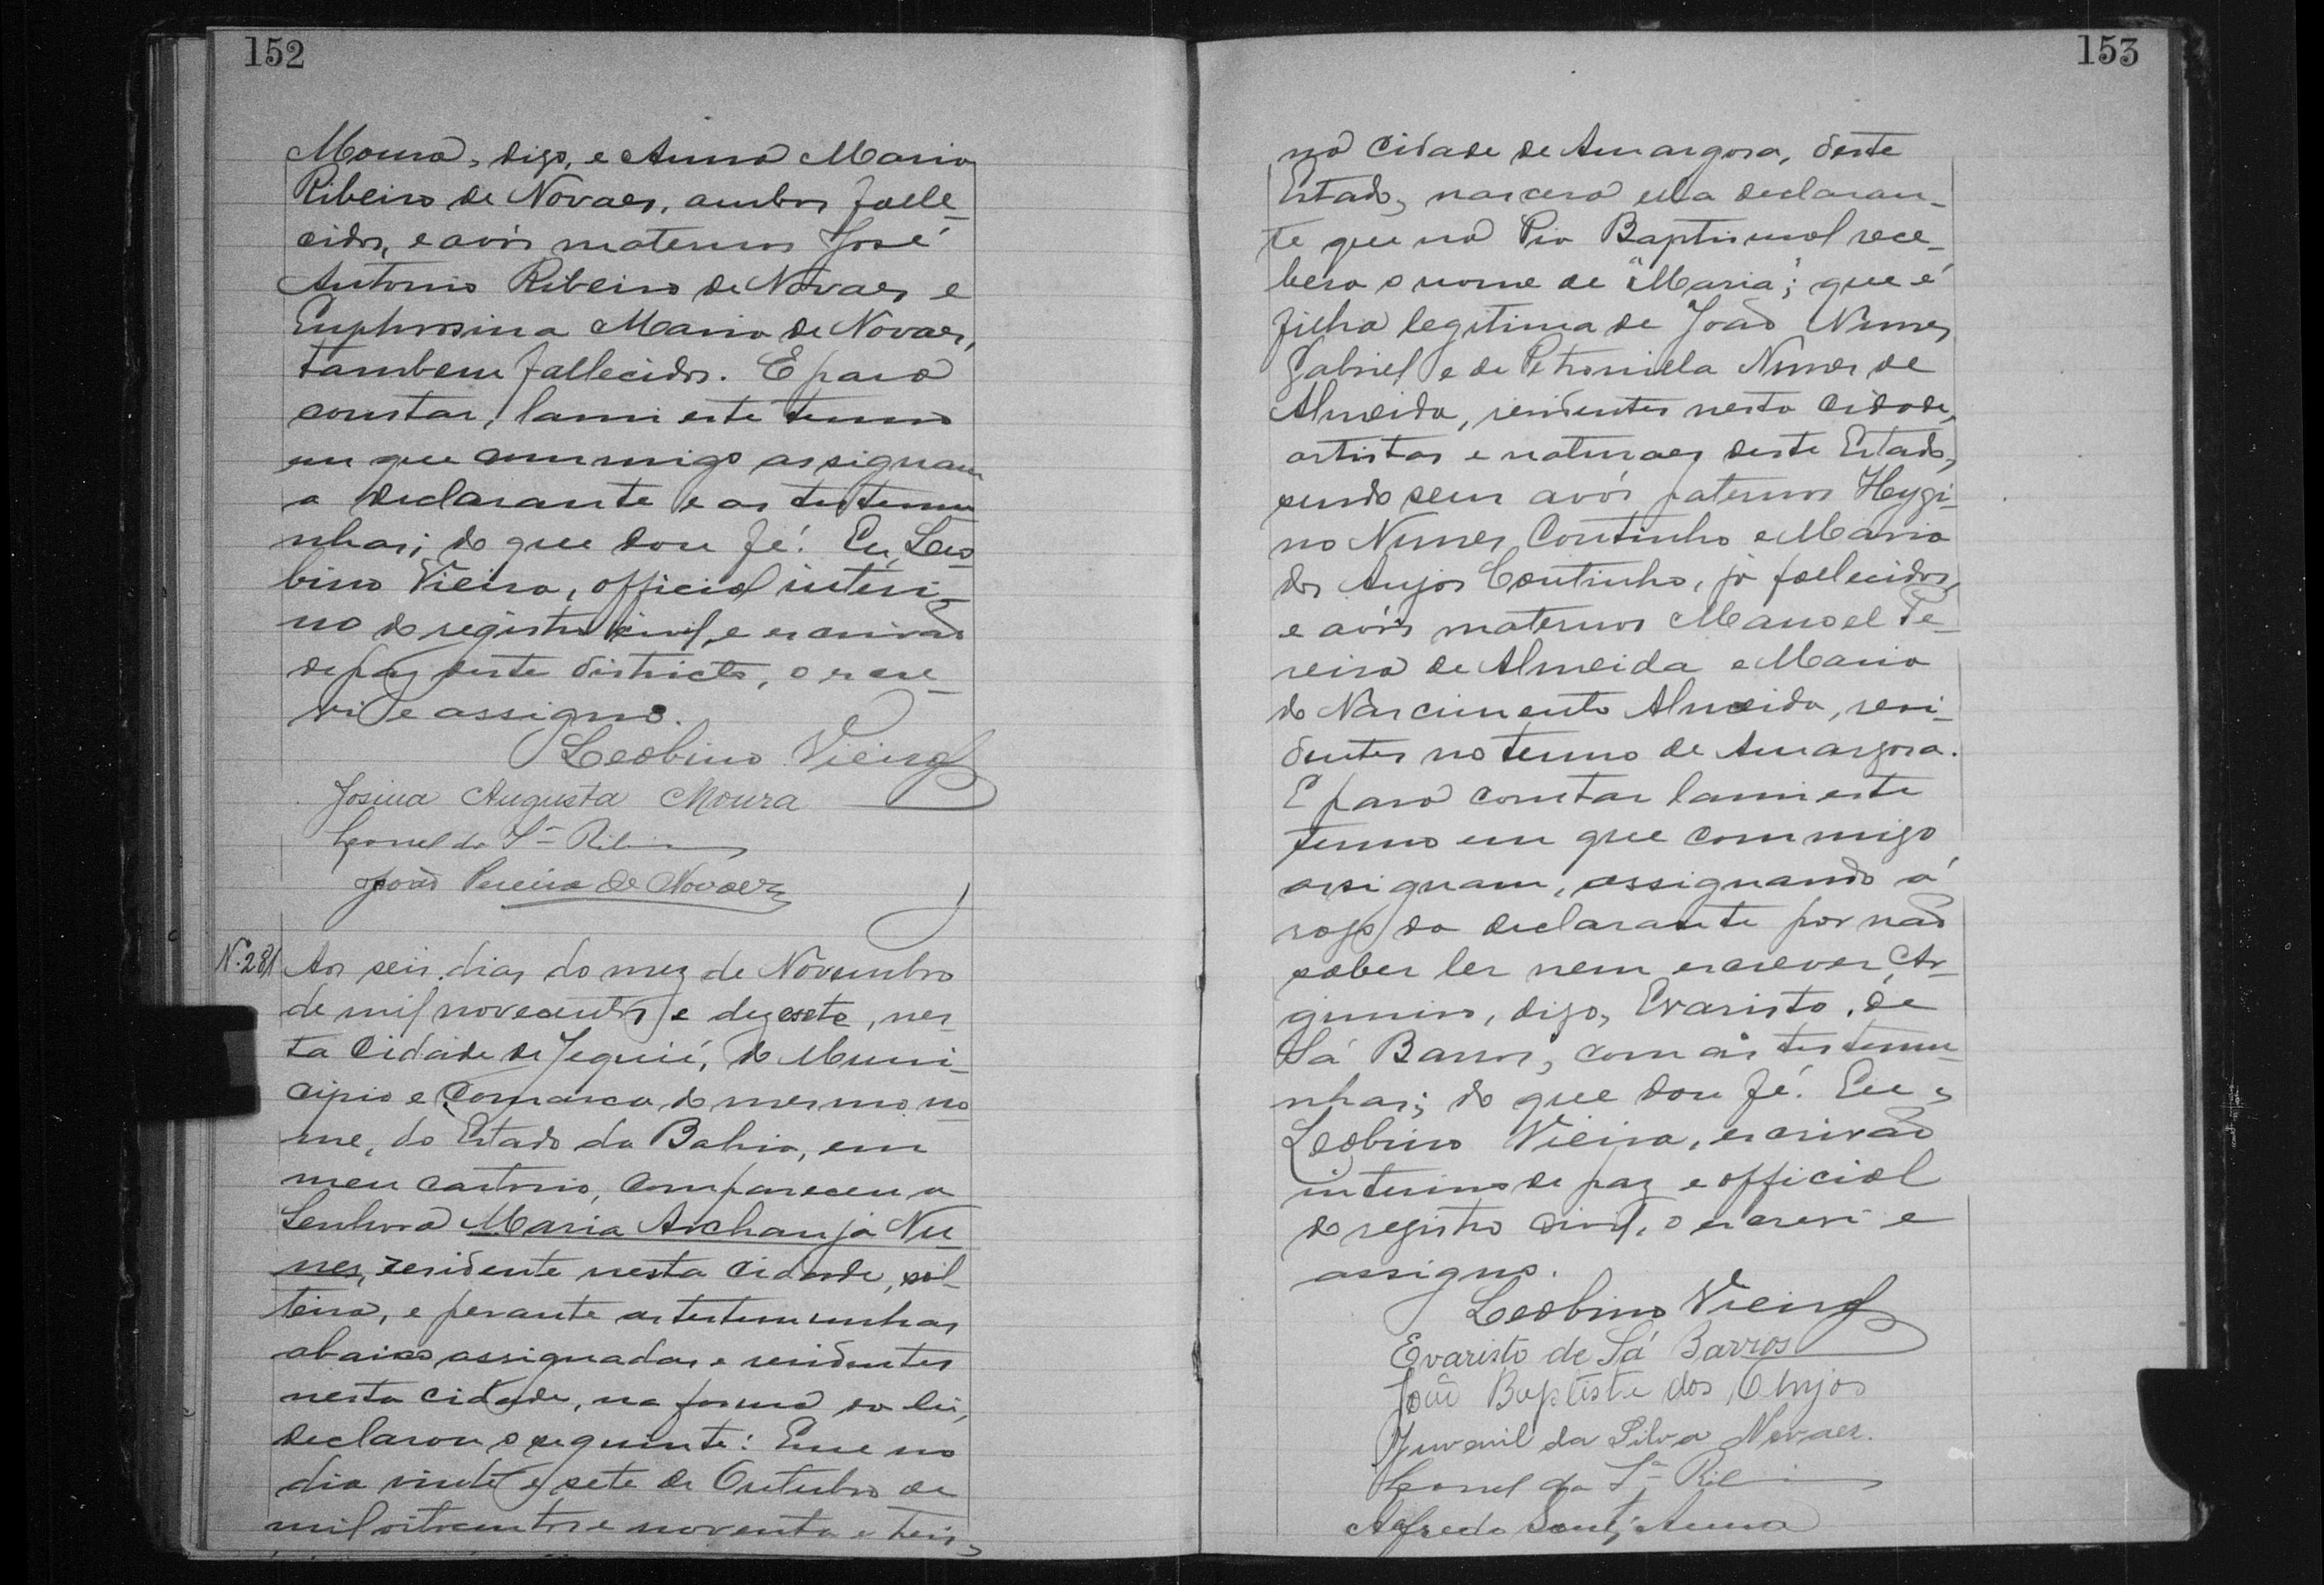 152
Moura, digo, e Anna Maria
Ribeiro de Novaes, ambos falle-
cidos, e avós maternos José
Antonio Ribeiro de Novaes e
Euphrosina Maria de Novaes,
tambem fallecidos. E para
constar, lavrei este termo
em que commigo assignam
a declarante e as testemu-
nhas; do que dou fé. Eu, Leo-
bino Vieira, official interi-
no do registro civil e escrivão
de paz deste districto, o escre-
vi e assigno.
Leobino Vieira
Josina Augusta Moura
Leonel da Sª Ribeiro
João Pereira de Novaes
N. 281
Aos seis dias do mez de Novembro
de mil novecentos e dezesete, nes-
ta Cidade de Jequié, do Muni-
cipio e Comarca do mesmo no-
me, do Estado da Bahia, em
meu cartorio, compareceu a
Senhora Maria Archanja Nu-
nes, residente nesta cidade, sol-
teira, e perante as testemunhas
abaixo assignadas e residentes
nesta cidade, na forma da lei,
declarou o seguinte: Que no
dia vinte e sete de Outubro de
mil oitocentos e noventa e seis,
153
na Cidade de Amargosa, deste
Estado, nascera ella declaran-
te que na Pia Baptismal rece-
bera o nome de "Maria"; que é
filha legitima de João Nunes
Gabriel e de Petronilla Nunes de
Almeida, residentes nesta Cidade,
artistas e naturaes deste Estado,
sendo seus avós paternos Hygi-
no Nunes Coutinho e Maria
dos Anjos Coutinho, já fallecidos,
e avós maternos Manoel Pe-
reira de Almeida e Maria
do Nascimento Almeida, resi-
dentes no termo de Amargosa.
E para constar lavrei este
termo em que commigo
assignam, assignando á
rogo da declarante por não
saber ler nem escrever, Ar-
gimiro, digo, Evaristo de
Sá Barros, com as testemu-
nhas; do que dou fé. Eu,
Leobino Vieira, escrivão
interino de paz e official
do registro civil, o escrevi e
assigno.
Leobino Vieira
Evaristo de Sá Barros
João Baptista dos Anjos
Juvenil da Silva Novaes.
Leonel da Sª Ribeiro
Alfredo Sant'Anna